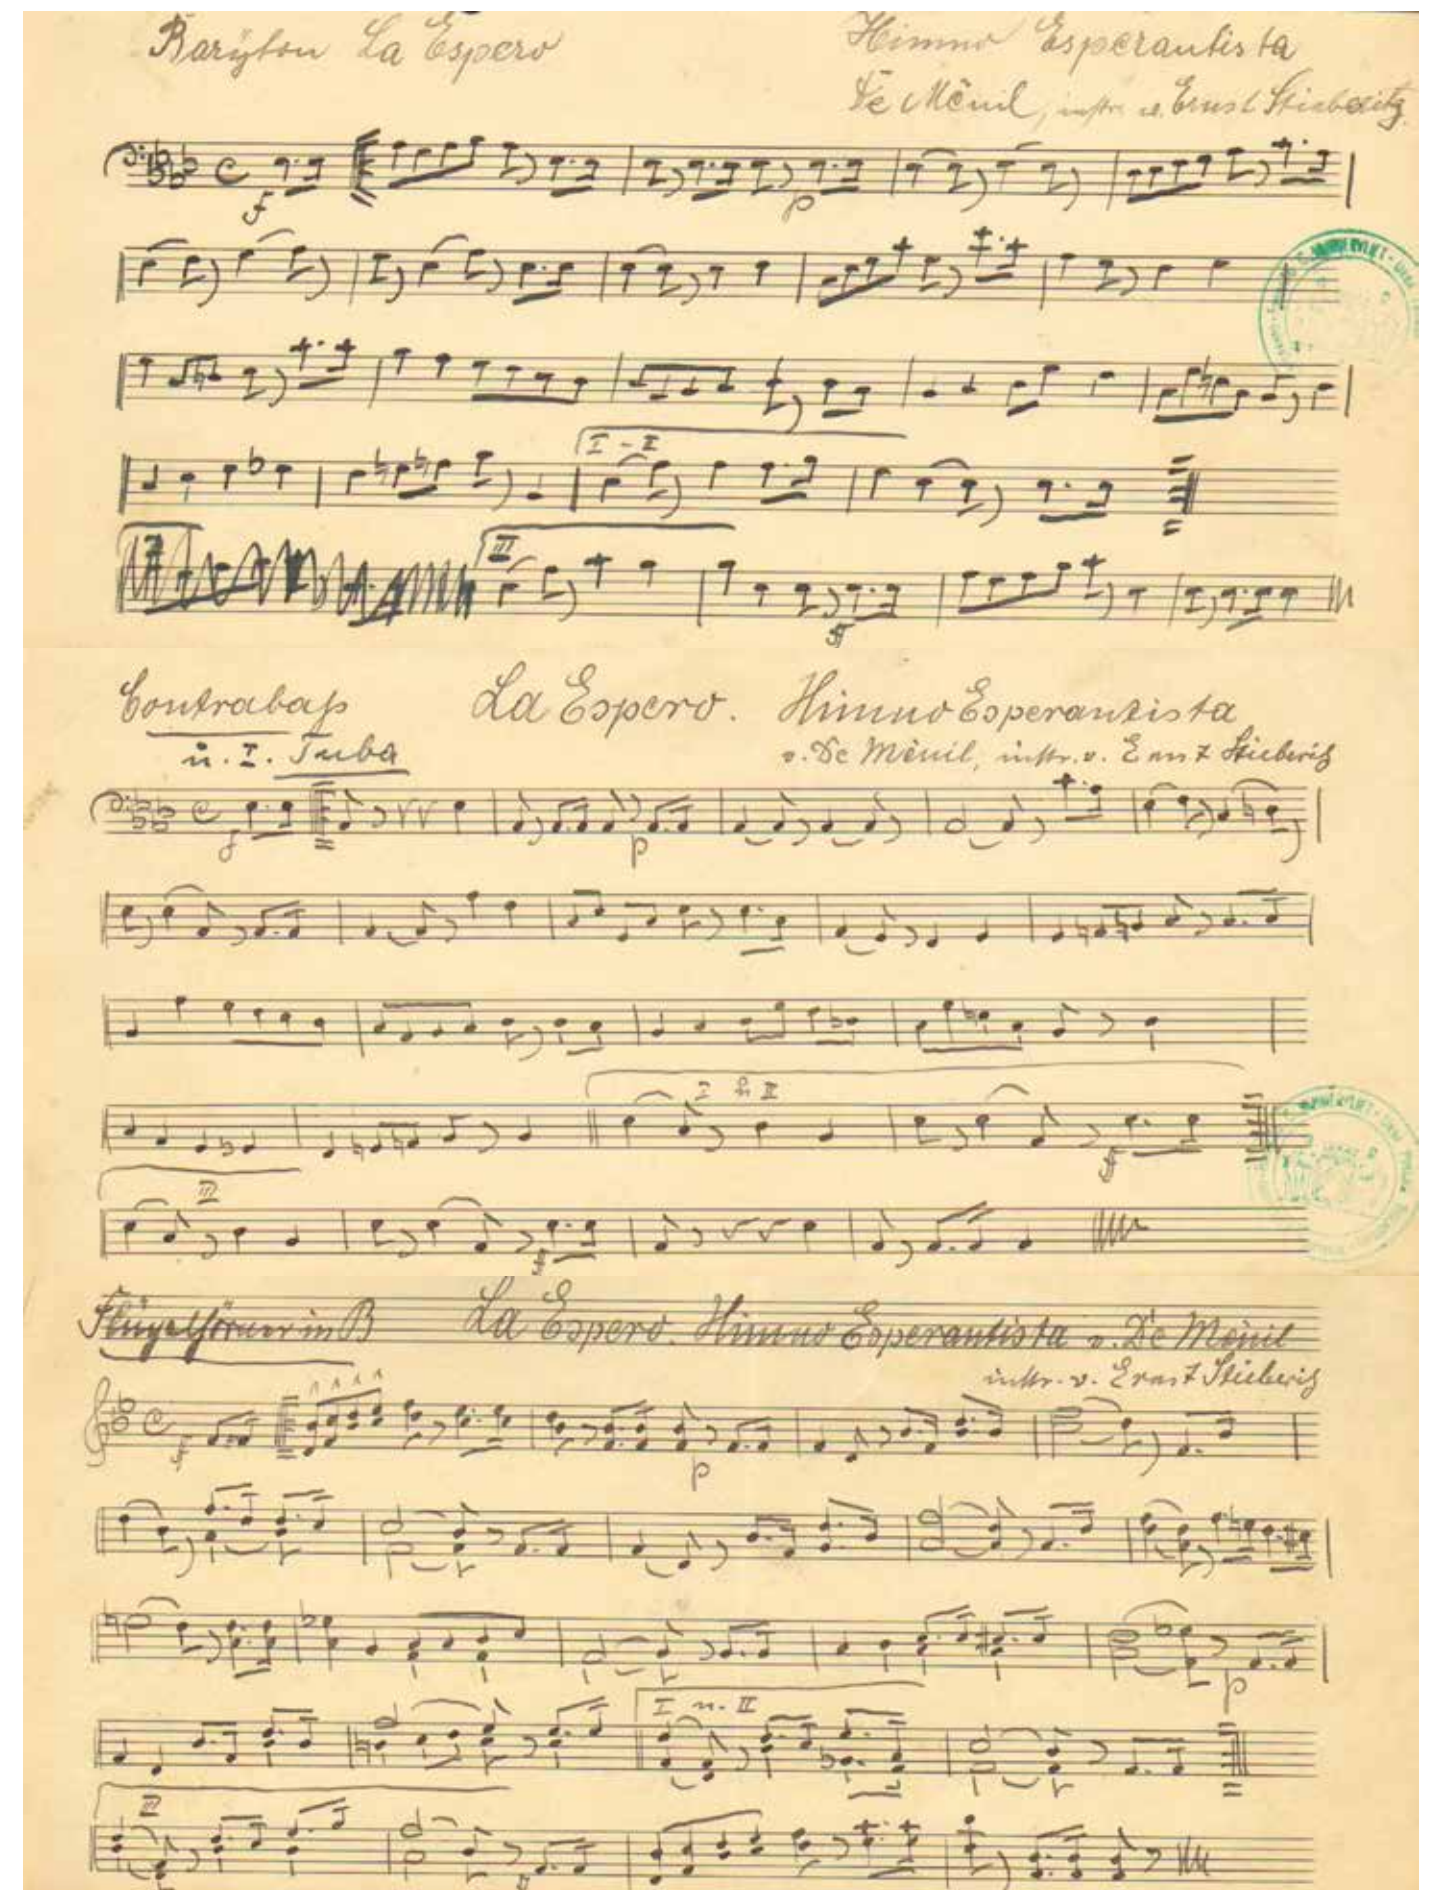 Baryton La Espero Himno Esperantista
De Mênil, instr. v. Ernst Stieberitz.
f
p
I - II
III
ff
Contrabaß La Espero. Himno Esperantista
u. I. Tuba v. De Mènil, instr. v. Ernst Stieberitz
f
p
I u. II
ff
III
ff
Flügelhörner in B La Espero. Himno Esperantista v. De Mènil
instr. v. Ernst Stieberitz
f
p
p
I u. II
III